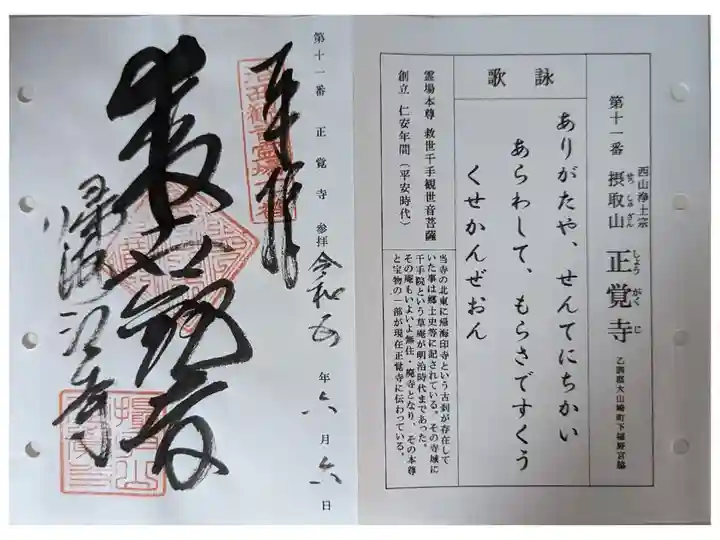 西山浄土宗
第十一番 摂取山 正覚寺
せっしゅざん
しょうがくじ
乙訓郡大山崎町下植野宮脇
詠歌
ありがたや、せんてにちかい
あらわして、もらさですくう
くせかんぜおん
霊場本尊 救世千手観世音菩薩
創立 仁安年間(平安時代)
当寺の北東に帰海印寺という古刹が存在して
いた事は郷土史等に記されている。その寺域に
千手院という草庵が明治時代まであった。
その庵もいよいよ無住・廃寺となり、その本尊
と宝物の一部が現在正覚寺に伝わっている。
第十一番 正覚寺 参拝 令和五年六月六日
奉拝